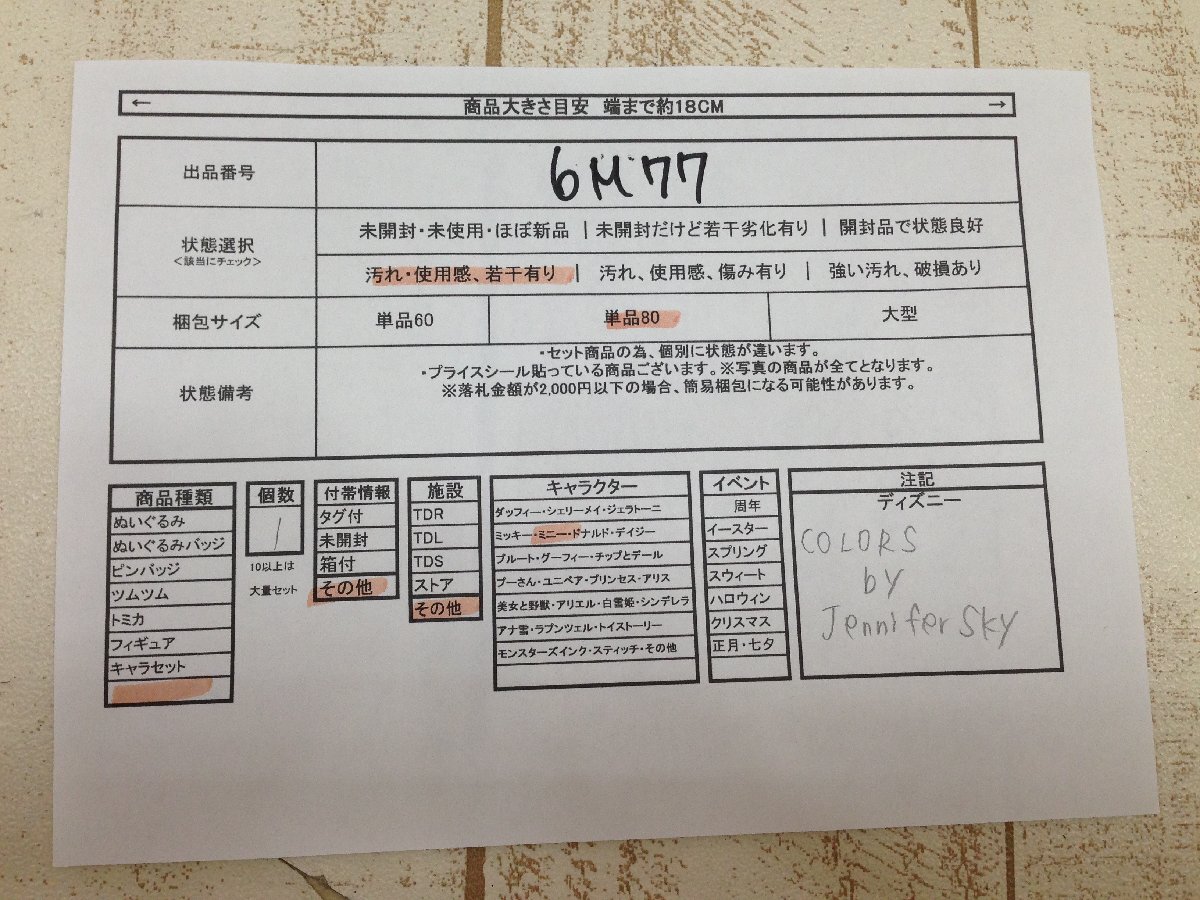 ← 商品大きさ目安 端まで約18CM →
出品番号
6M77
状態選択
<該当にチェック>
未開封・未使用・ほぼ新品 | 未開封だけど若干劣化有り | 開封品で状態良好
汚れ・使用感、若干有り | 汚れ、使用感、傷み有り | 強い汚れ、破損あり
梱包サイズ
単品60
単品80
大型
状態備考
・セット商品の為、個別に状態が違います。
・プライスシール貼っている商品ございます。※写真の商品が全てとなります。
※落札金額が2,000円以下の場合、簡易梱包になる可能性があります。
商品種類
ぬいぐるみ
ぬいぐるみバッジ
ピンバッジ
ツムツム
トミカ
フィギュア
キャラセット
個数
1
10以上は
大量セット
付帯情報
タグ付
未開封
箱付
その他
施設
TDR
TDL
TDS
ストア
その他
キャラクター
ダッフィー・シェリーメイ・ジェラトーニ
ミッキー・ミニー・ドナルド・デイジー
プルート・グーフィー・チップとデール
プーさん・ユニベア・プリンセス・アリス
美女と野獣・アリエル・白雪姫・シンデレラ
アナ雪・ラプンツェル・トイストーリー
モンスターズインク・スティッチ・その他
イベント
周年
イースター
スプリング
スウィート
ハロウィン
クリスマス
正月・七夕
注記
ディズニー
COLORS
by
Jennifer Sky